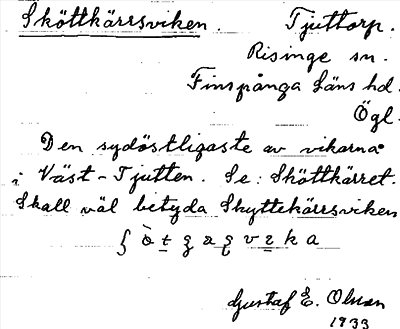 Sköttkärrsviken. Tjuttorp.
Risinge sn.
Finspånga Läns hd.
Ögl.
Den sydöstligaste av vikarna
i Väst-Tjutten. Se: Sköttkärret.
Skall väl betyda Skyttekärrsviken
Gustaf E. Olsson
1933